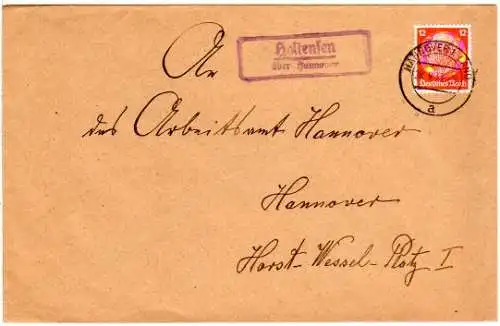 Holtensen
über Hannover
12 12
Deutsches Reich
HANNOVER 1
a
An
das Arbeitsamt Hannover
Hannover
Horst-Wessel-Platz I